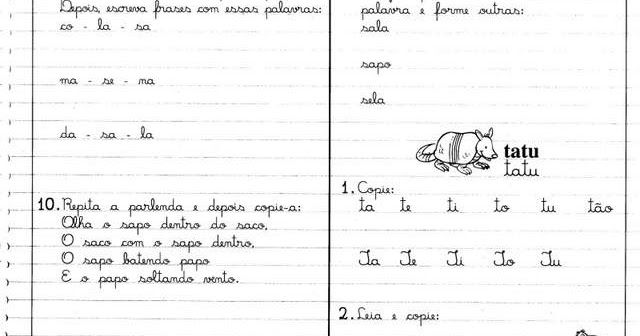 Depois, escreva frases com essas palavras:
co - la - sa
ma - se - na
da - sa - la
10. Repita a parlenda e depois copie-a:
Olha o sapo dentro do saco,
O saco com o sapo dentro,
O sapo batendo papo
E o papo soltando vento.
palavra e forme outras:
sala
sapo
sela
tatu
tatu
1. Copie:
ta te ti to tu tão
Ta Te Ti To Tu
2. Leia e copie: